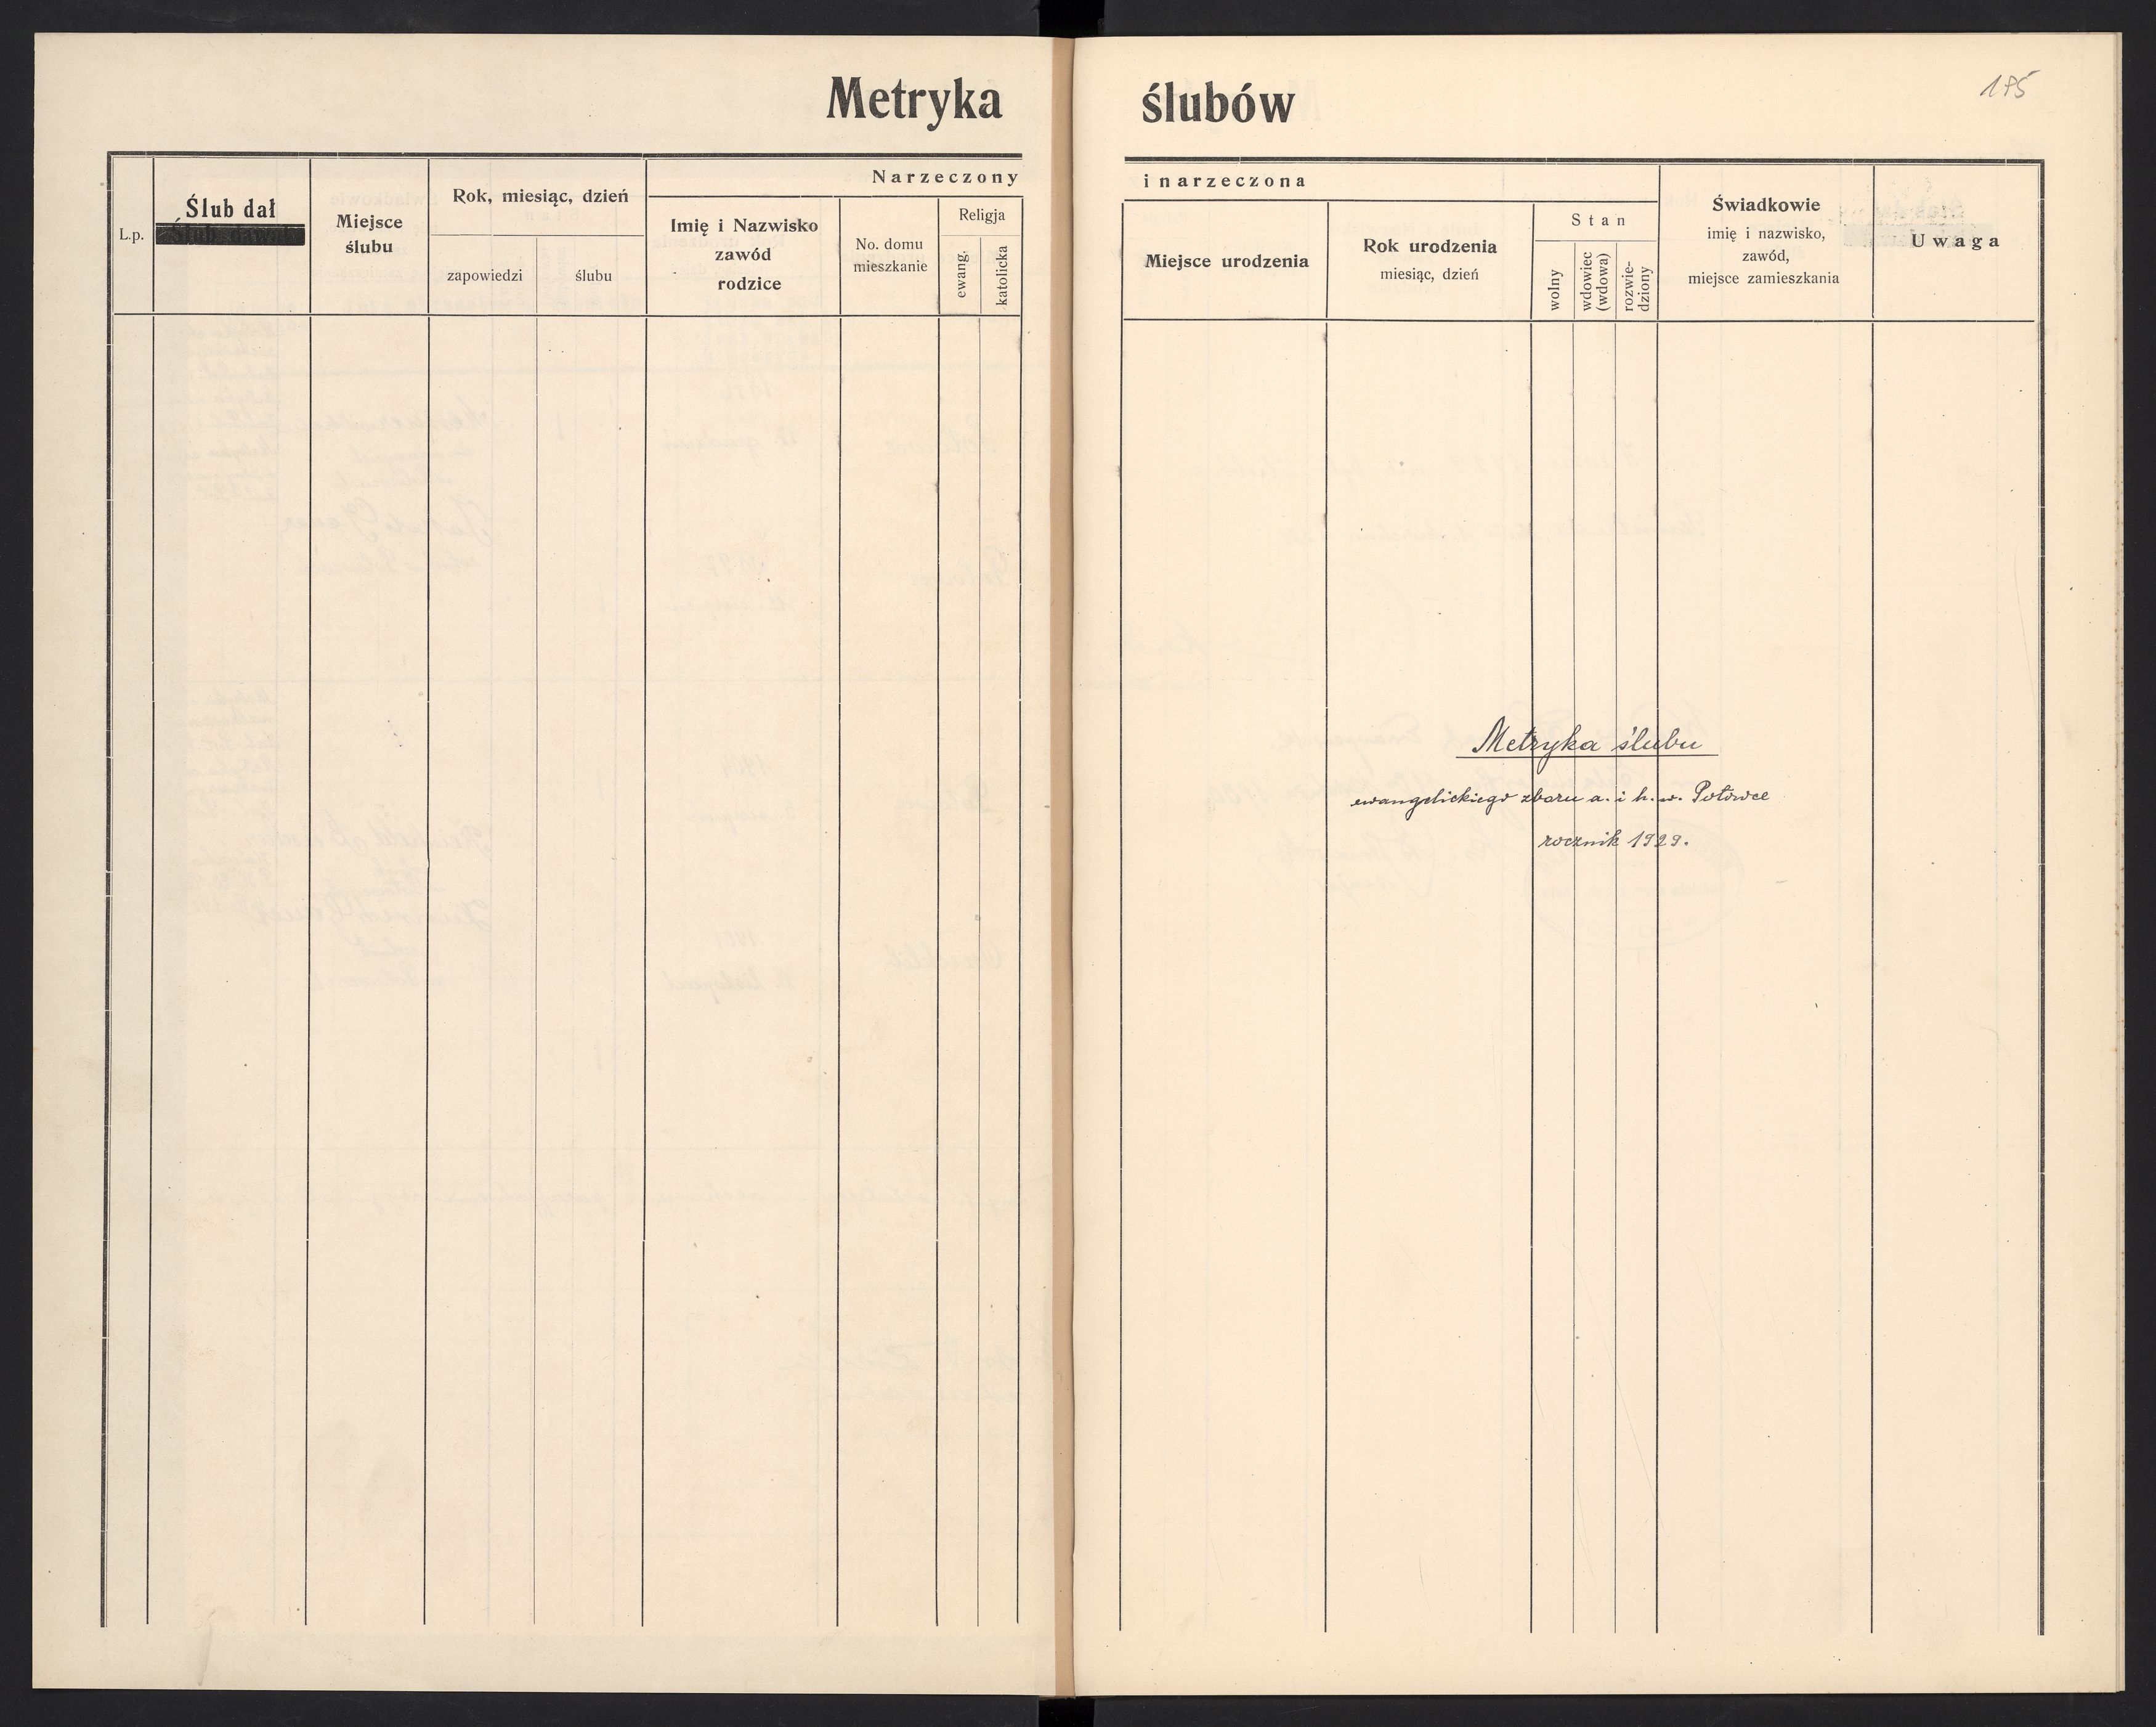 Metryka ślubów
175
L.p.
Ślub dał
Miejsce
ślubu
Rok, miesiąc, dzień
zapowiedzi
ślubu
Narzeczony
Imię i Nazwisko
zawód
rodzice
No. domu
mieszkanie
Religja
ewang.
katolicka
i narzeczona
Miejsce urodzenia
Rok urodzenia
miesiąc, dzień
Stan
wolny
wdowiec
(wdowa)
rozwie-
dziony
Świadkowie
imię i nazwisko,
zawód,
miejsce zamieszkania
Uwaga
Metryka ślubu
ewangelickiego zboru a. i h. w. Polowce
rocznik 1929.